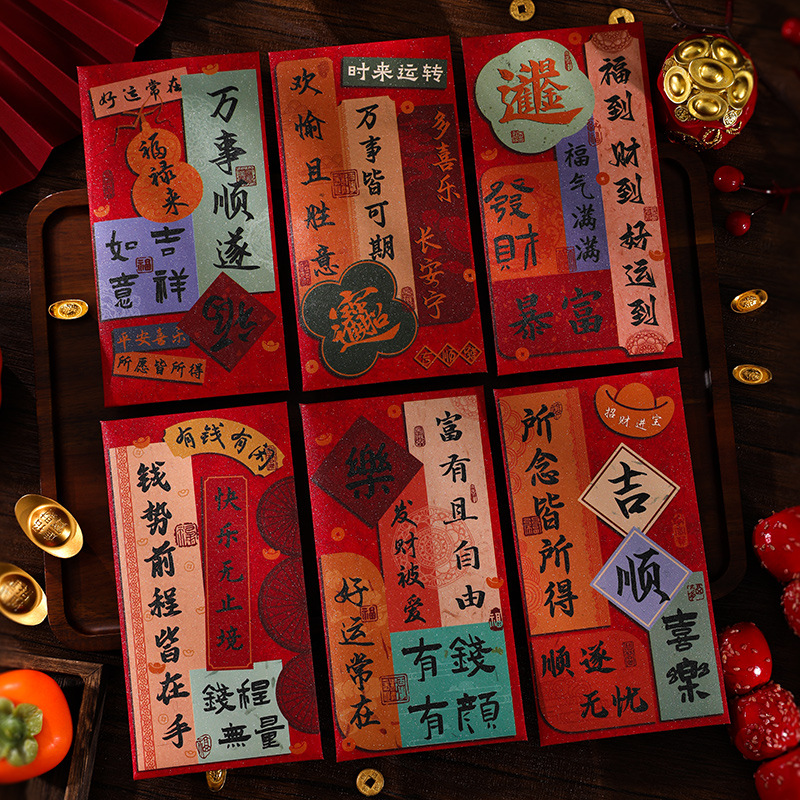 好运常在
万事顺遂
福禄来
如意
吉祥
平安喜乐
所愿皆所得
时来运转
欢愉且胜意
万事皆可期
多喜乐
长安宁
福到财到好运到
福气满满
發财
暴富
有钱有闲
钱势前程皆在手
快乐无止境
錢程
無量
樂
富有且自由
发财被爱
好运常在
有錢
有顔
所念皆所得
招财进宝
吉
顺
喜樂
顺遂
无忧